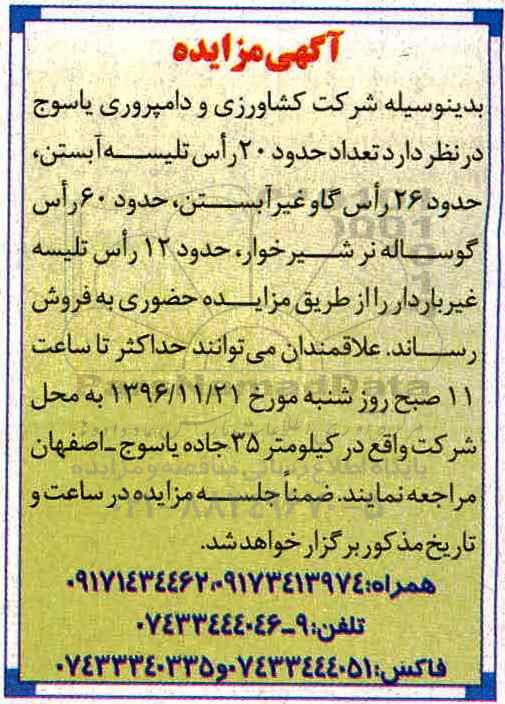 آگهی مزایده
بدینوسیله شرکت کشاورزی و دامپروری یاسوج
درنظر دارد تعداد حدود ۲۰رأس تلیسه آبستن،
حدود ۲۶ رأس گاو غیرآبستن، حدود ۶۰رأس
گوساله نر شیرخوار، حدود ۱۲ رأس تلیسه
غیرباردار را از طریق مزایده حضوری به فروش
رساند. علاقمندان می‌توانند حداکثر تا ساعت
۱۱ صبح روز شنبه مورخ ۱۳۹۶/۱۱/۲۱ به محل
شرکت واقع در کیلومتر ۳۵جاده یاسوج ـ اصفهان
مراجعه نمایند. ضمناً جلسه مزایده در ساعت و
تاریخ مذکور برگزار خواهد شد.
همراه:۰۹۱۷۳۴۱۳۹۷۴،۰۹۱۷۱۴۳۴۴۶۲
تلفن:۹ـ۰۷۴۳۳۴۴۴۰۴۶
فاکس:۰۷۴۳۳۴۴۴۰۵۱و۰۷۴۳۳۳۴۰۳۳۵